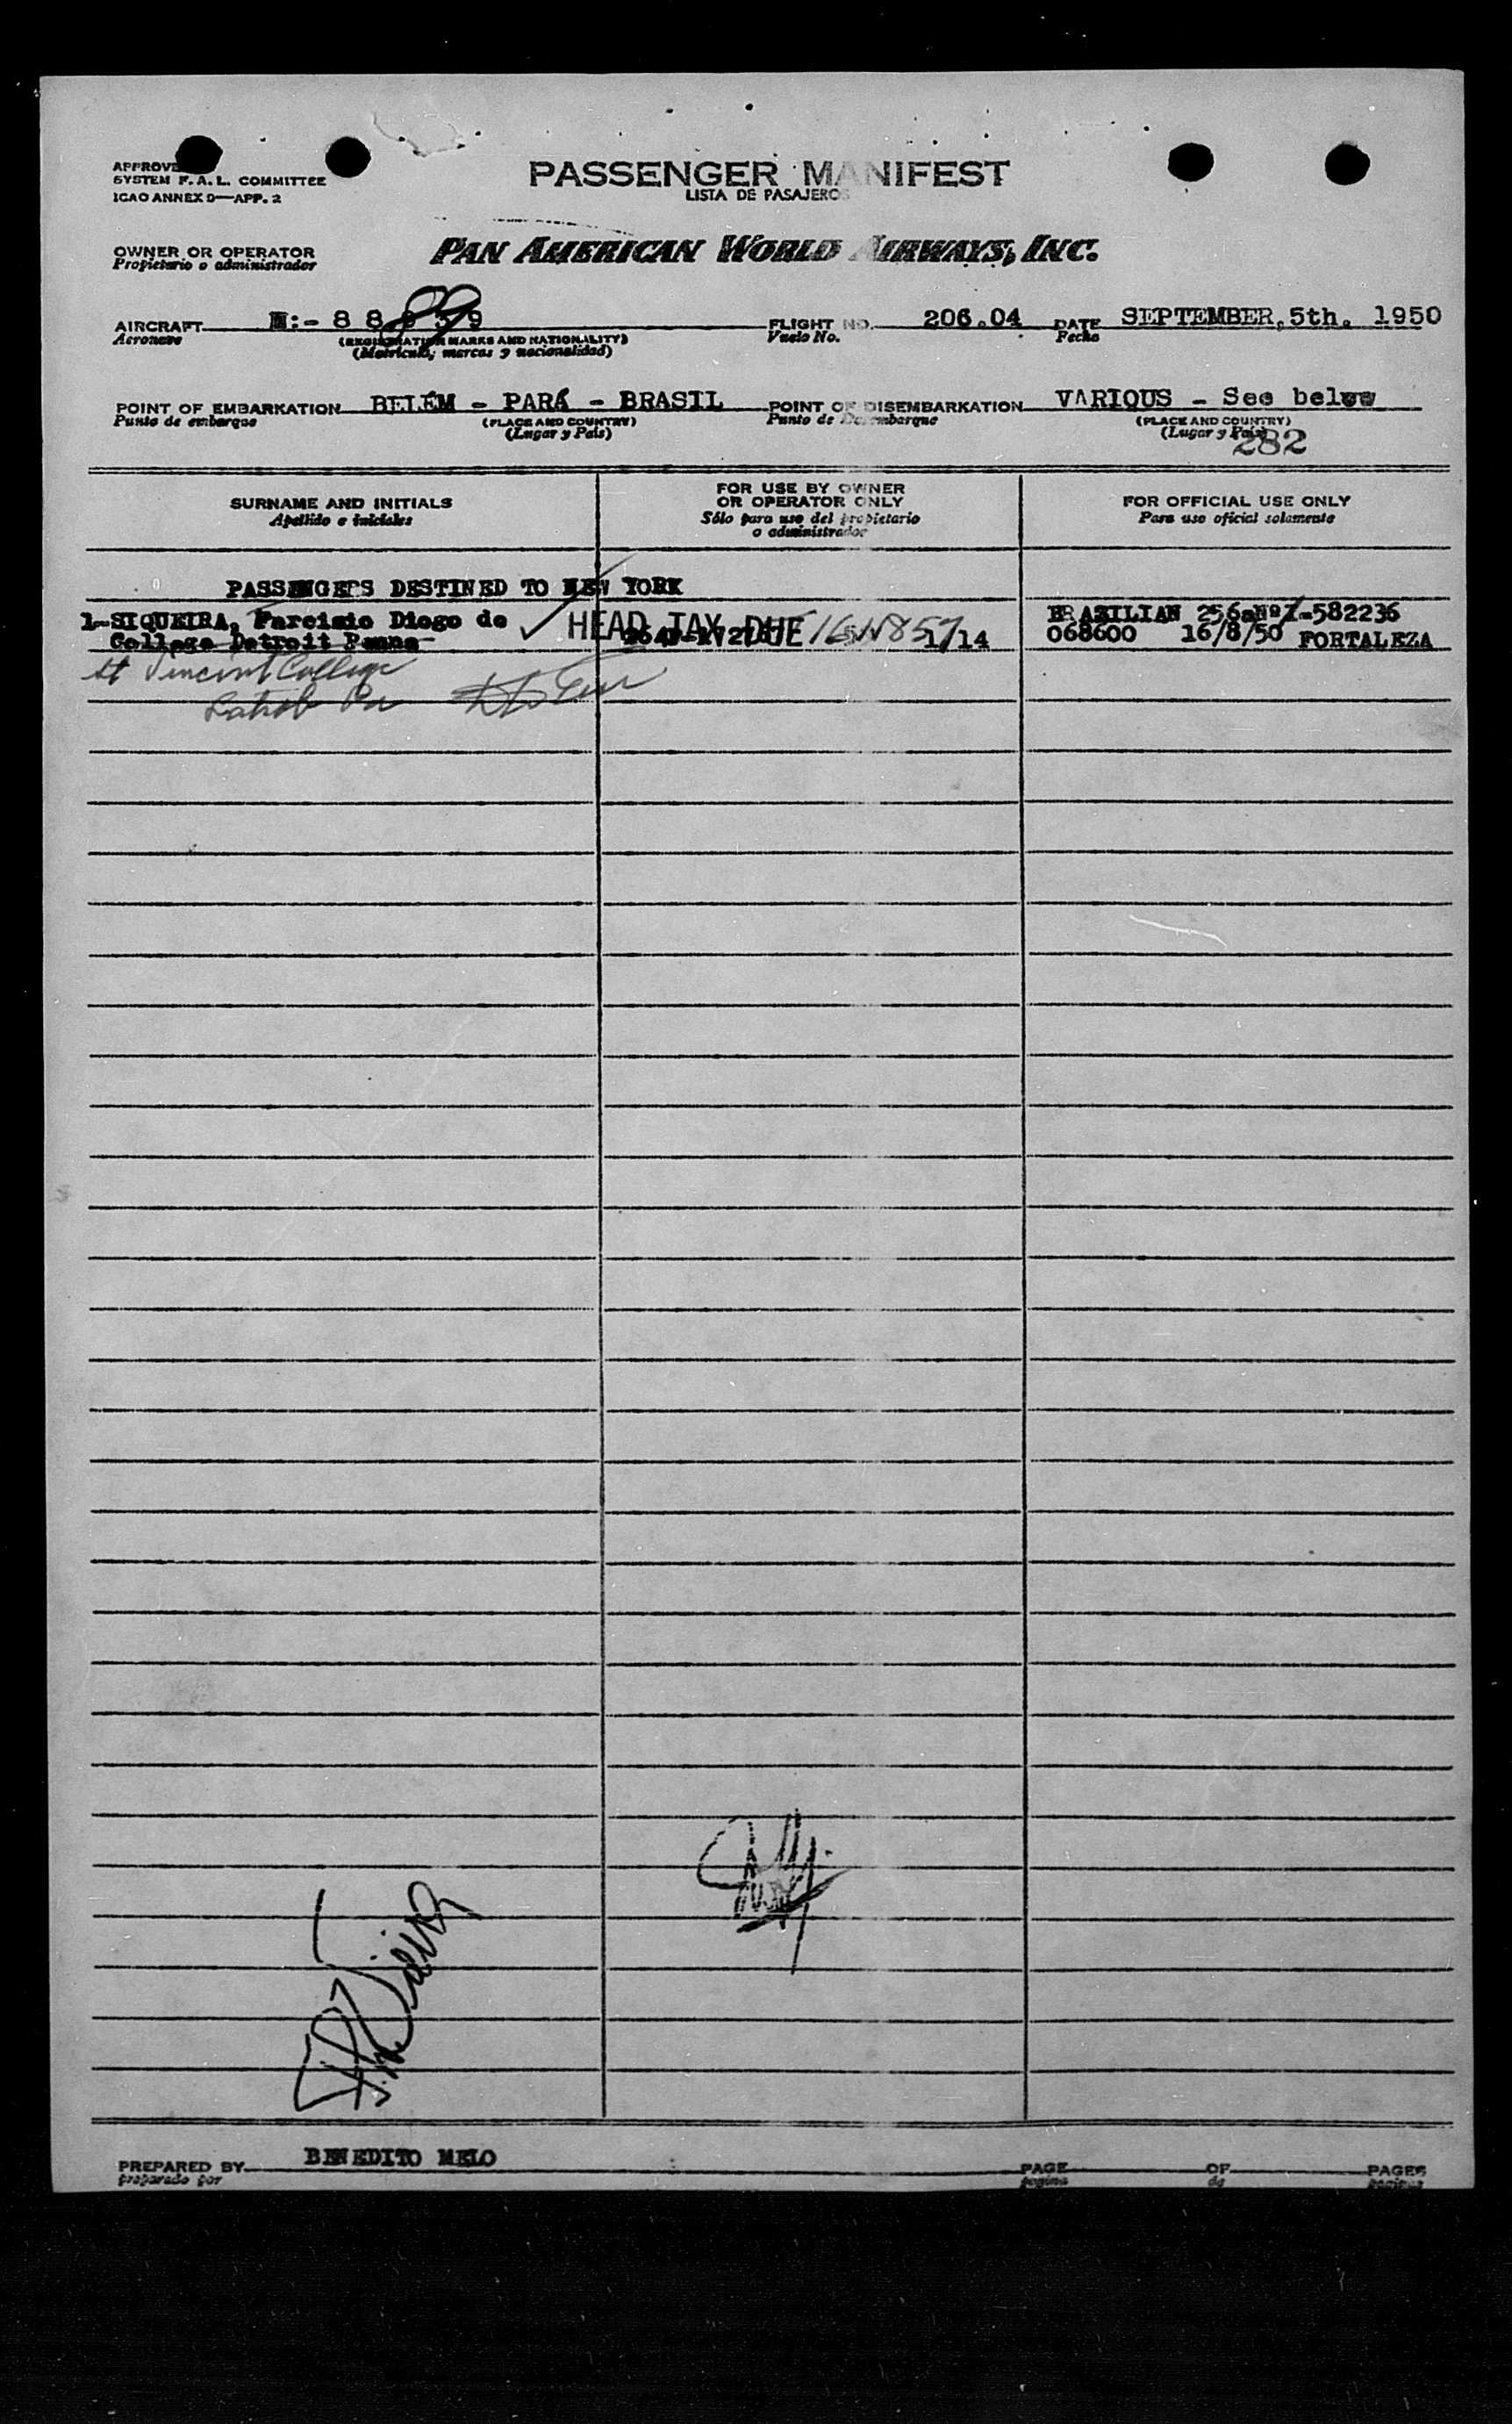 APPROVE
SYSTEM F. A. L. COMMITTEE
ICAO ANNEX 9—APP. 2
PASSENGER MANIFEST
LISTA DE PASAJEROS
OWNER OR OPERATOR
Propietario o administrador
PAN AMERICAN WORLD AIRWAYS, INC.
AIRCRAFT
Aeronave
(REGISTRATION MARKS AND NATIONALITY)
(Matrícula; marcas y nacionalidad)
FLIGHT NO. 206.04
Vuelo No.
DATE SEPTEMBER,5th. 1950
Fecha
POINT OF EMBARKATION BELÉM - PARÁ - BRASIL
Punto de embarque
(PLACE AND COUNTRY)
(Lugar y País)
POINT OF DISEMBARKATION VARIOUS - See below
Punto de Desembarque
(PLACE AND COUNTRY)
(Lugar y País)
282
SURNAME AND INITIALS
Apellido e iniciales
FOR USE BY OWNER
OR OPERATOR ONLY
Sólo para uso del propietario
o administrador
FOR OFFICIAL USE ONLY
Para uso oficial solamente
PASSENGERS DESTINED TO NEW YORK
1-SIQUEIRA, Diogo de
HEAD TAX DUE
1/14
BRAZILIAN
582236
College Detroit Penna
068600 16/8/50 FORTALEZA
St Vincent College
Latrob Pa
PREPARED BY BENEDITO MELO
preparado por
PAGE OF PAGES
pagina de paginas